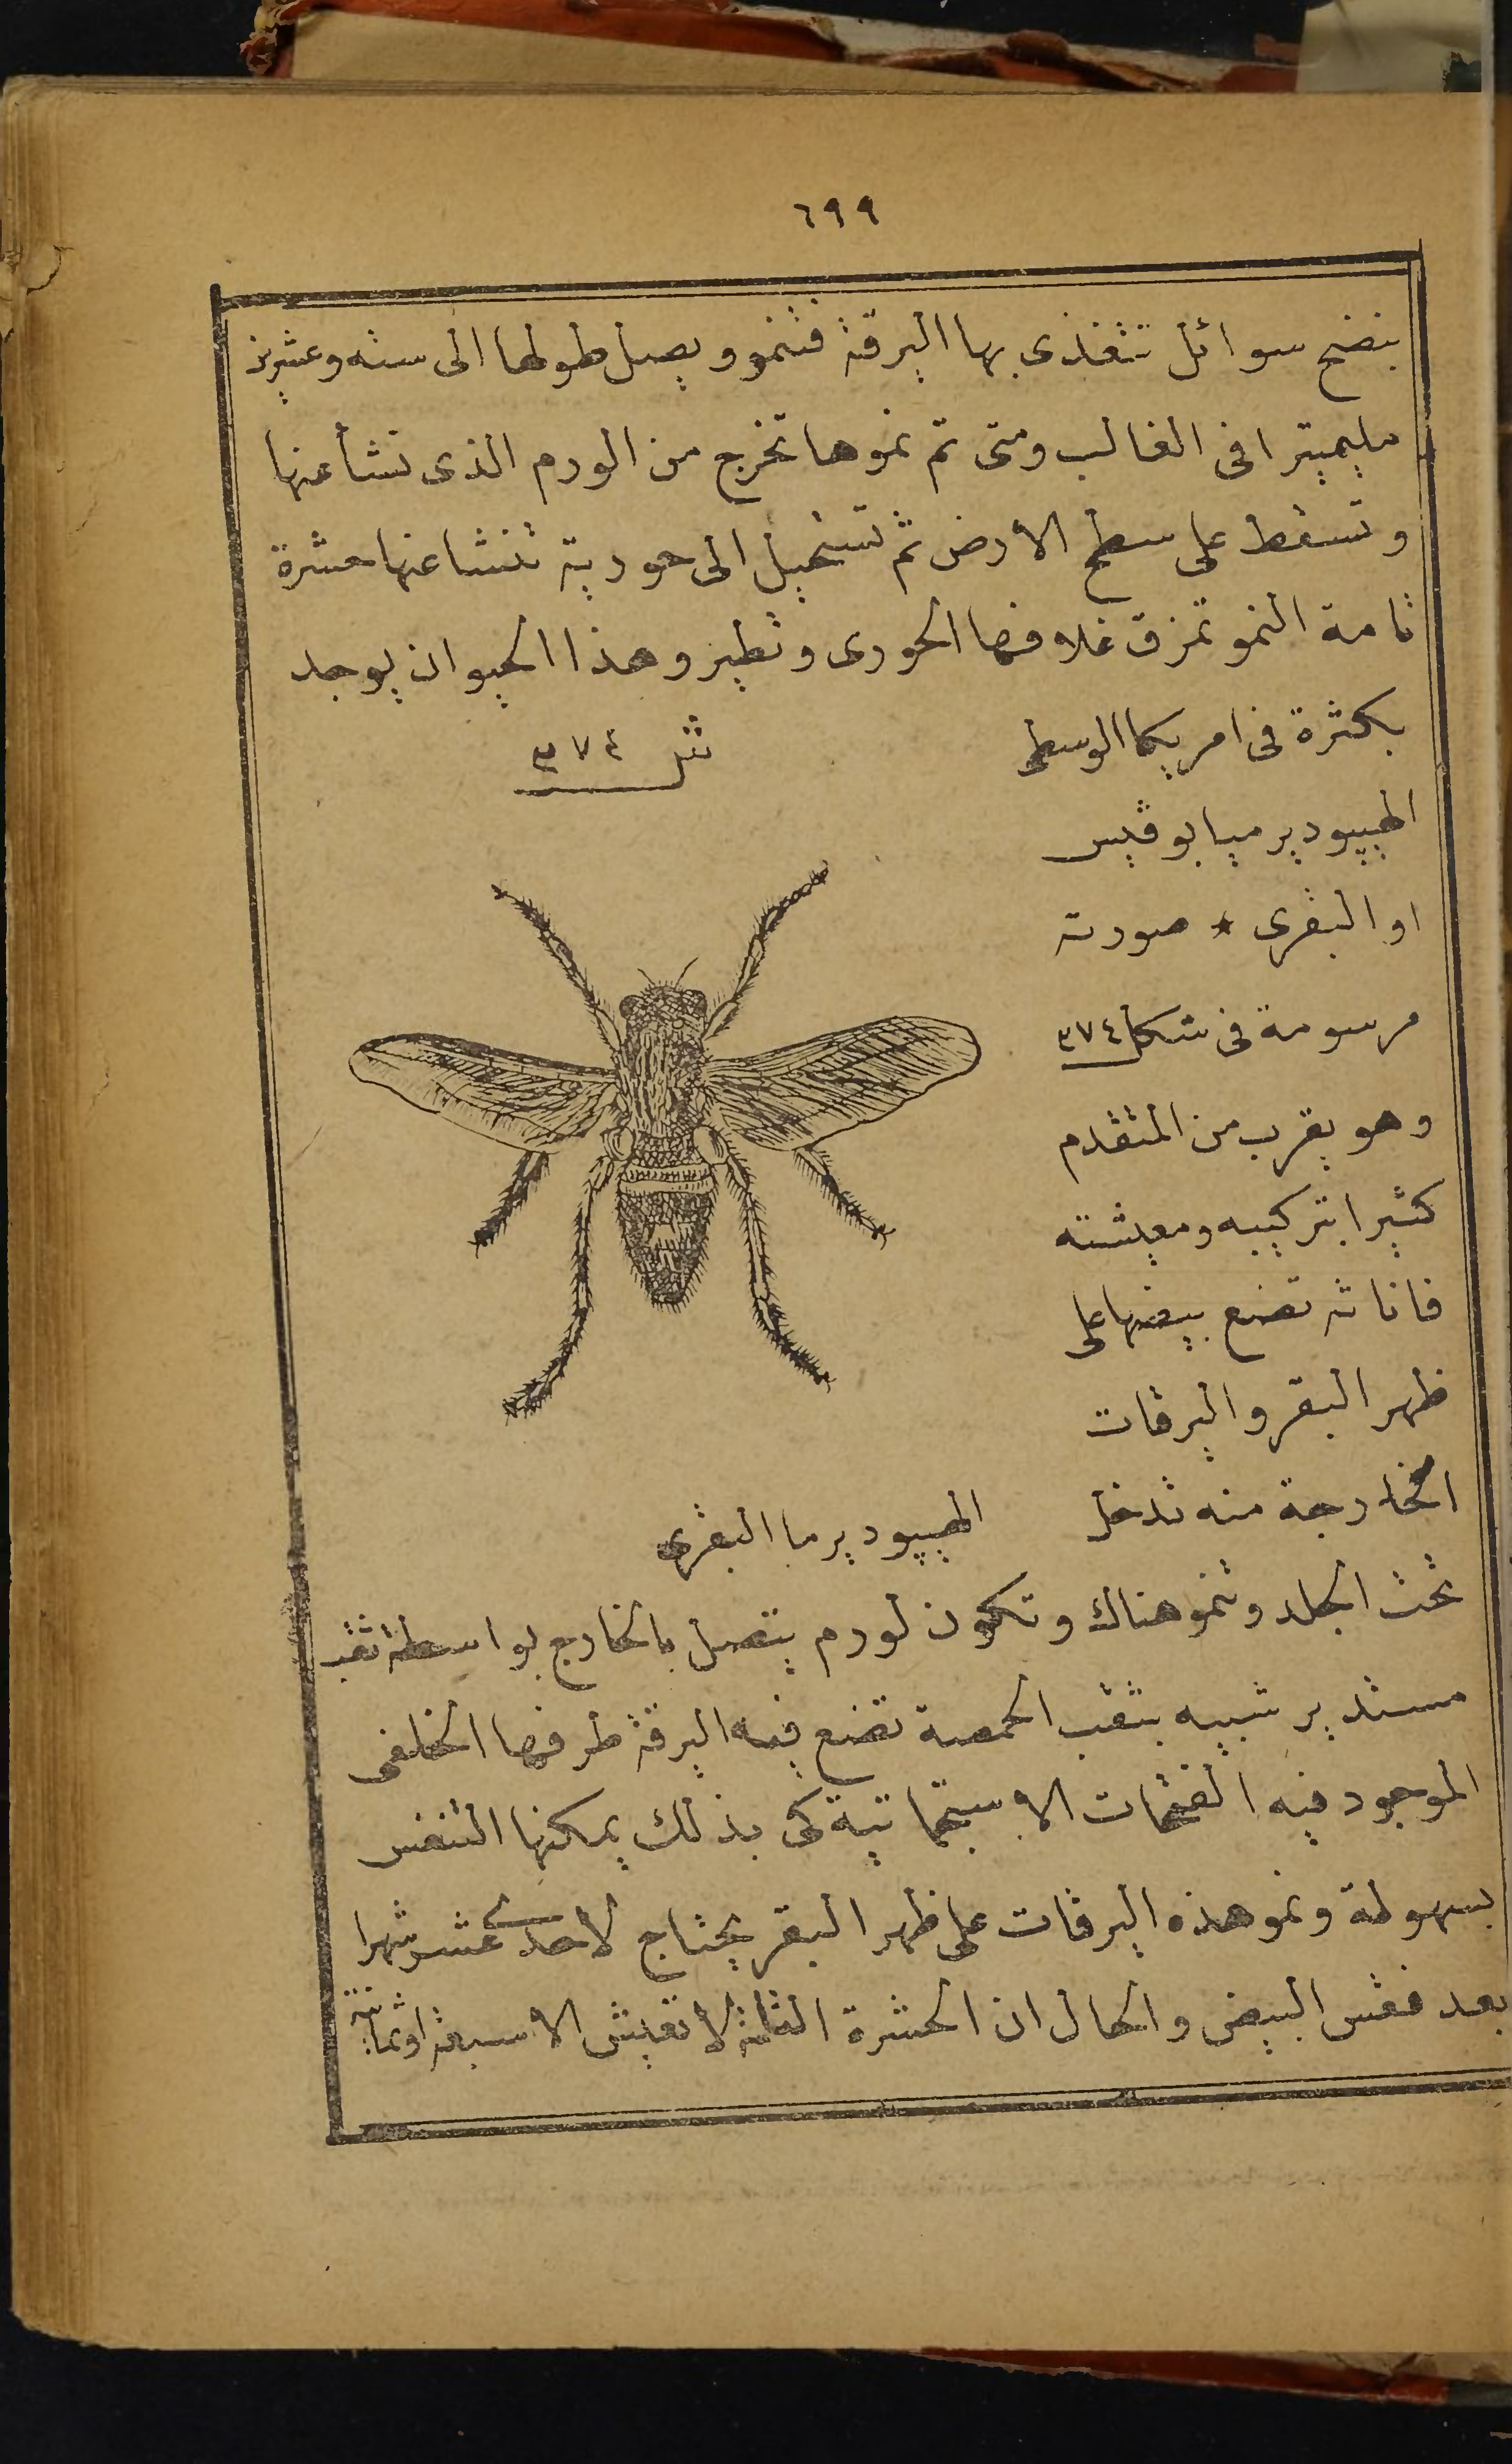 ٦٩٩
ينضح سوائل تتغذى بها اليرقة فتنمو ويصل طولها الى ستة وعشرين
مليميترا فى الغالب ومتى تم نموها تخرج من الورم الذى نشأ عنها
وتسقط على سطح الارض ثم تستحيل الى حورية تنشا عنها حشرة
تامة النمو تمزق غلافها الحورى وتطير وهذا الحيوان يوجد
بكثرة فى امريكا الوسطى
شل ٣٧٤
الهيپوديرميا بوڤيس
او البقرى * صورته
مرسومة فى شكل ٣٧٤
وهو يقرب من المتقدم
كثيرا بتركيبه ومعيشته
فاناثه تضع بيضها على
ظهر البقر واليرقات
الخارجة منه تدخل
الهيپوديرما البقرى
تحت الجلد وتنمو هناك وتكون لورم يتصل بالخارج بواسطة ثقب
مستدير شبيه بثقب الحمصة تضع فيه اليرقة طرفها الخلفى
الموجود فيه الفتحات الاستجماتية كى بذلك يمكنها التنفس
بسهولة ونمو هذه اليرقات على ظهر البقر يحتاج لاحدى عشر شهرا
بعد فقس البيض والحال ان الحشرة التامة لا تعيش الا سبعة او ثمانية